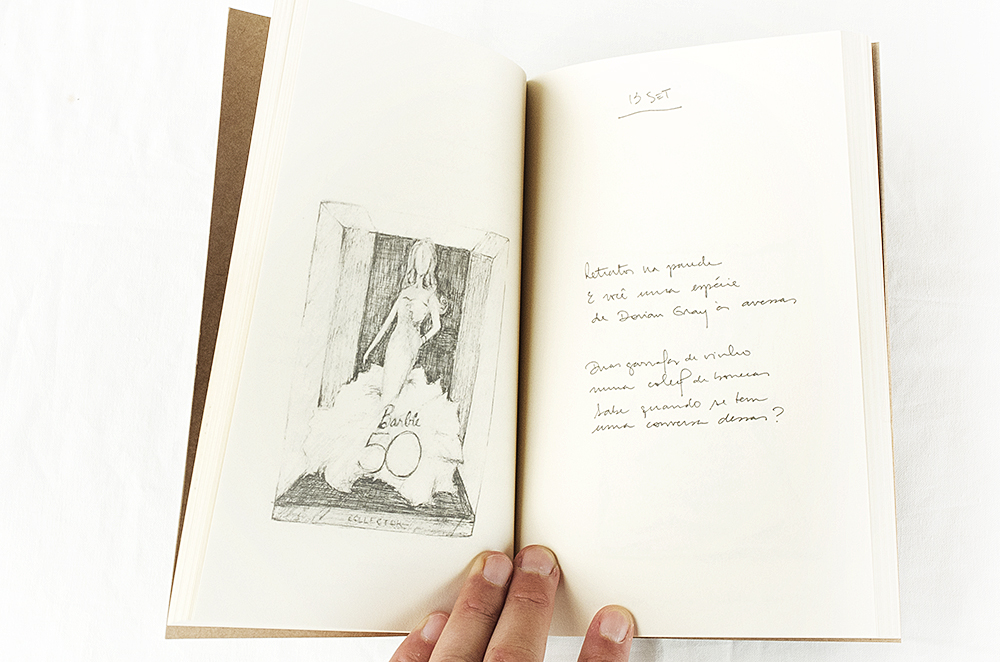 Barbie
50
COLLECTOR
13 SET
Retratos na parede
E você uma espécie
de Dorian Gray às avessas
Duas garrafas de vinho
numa coleç de bonecas
Sabe quando se tem
uma conversa dessas?